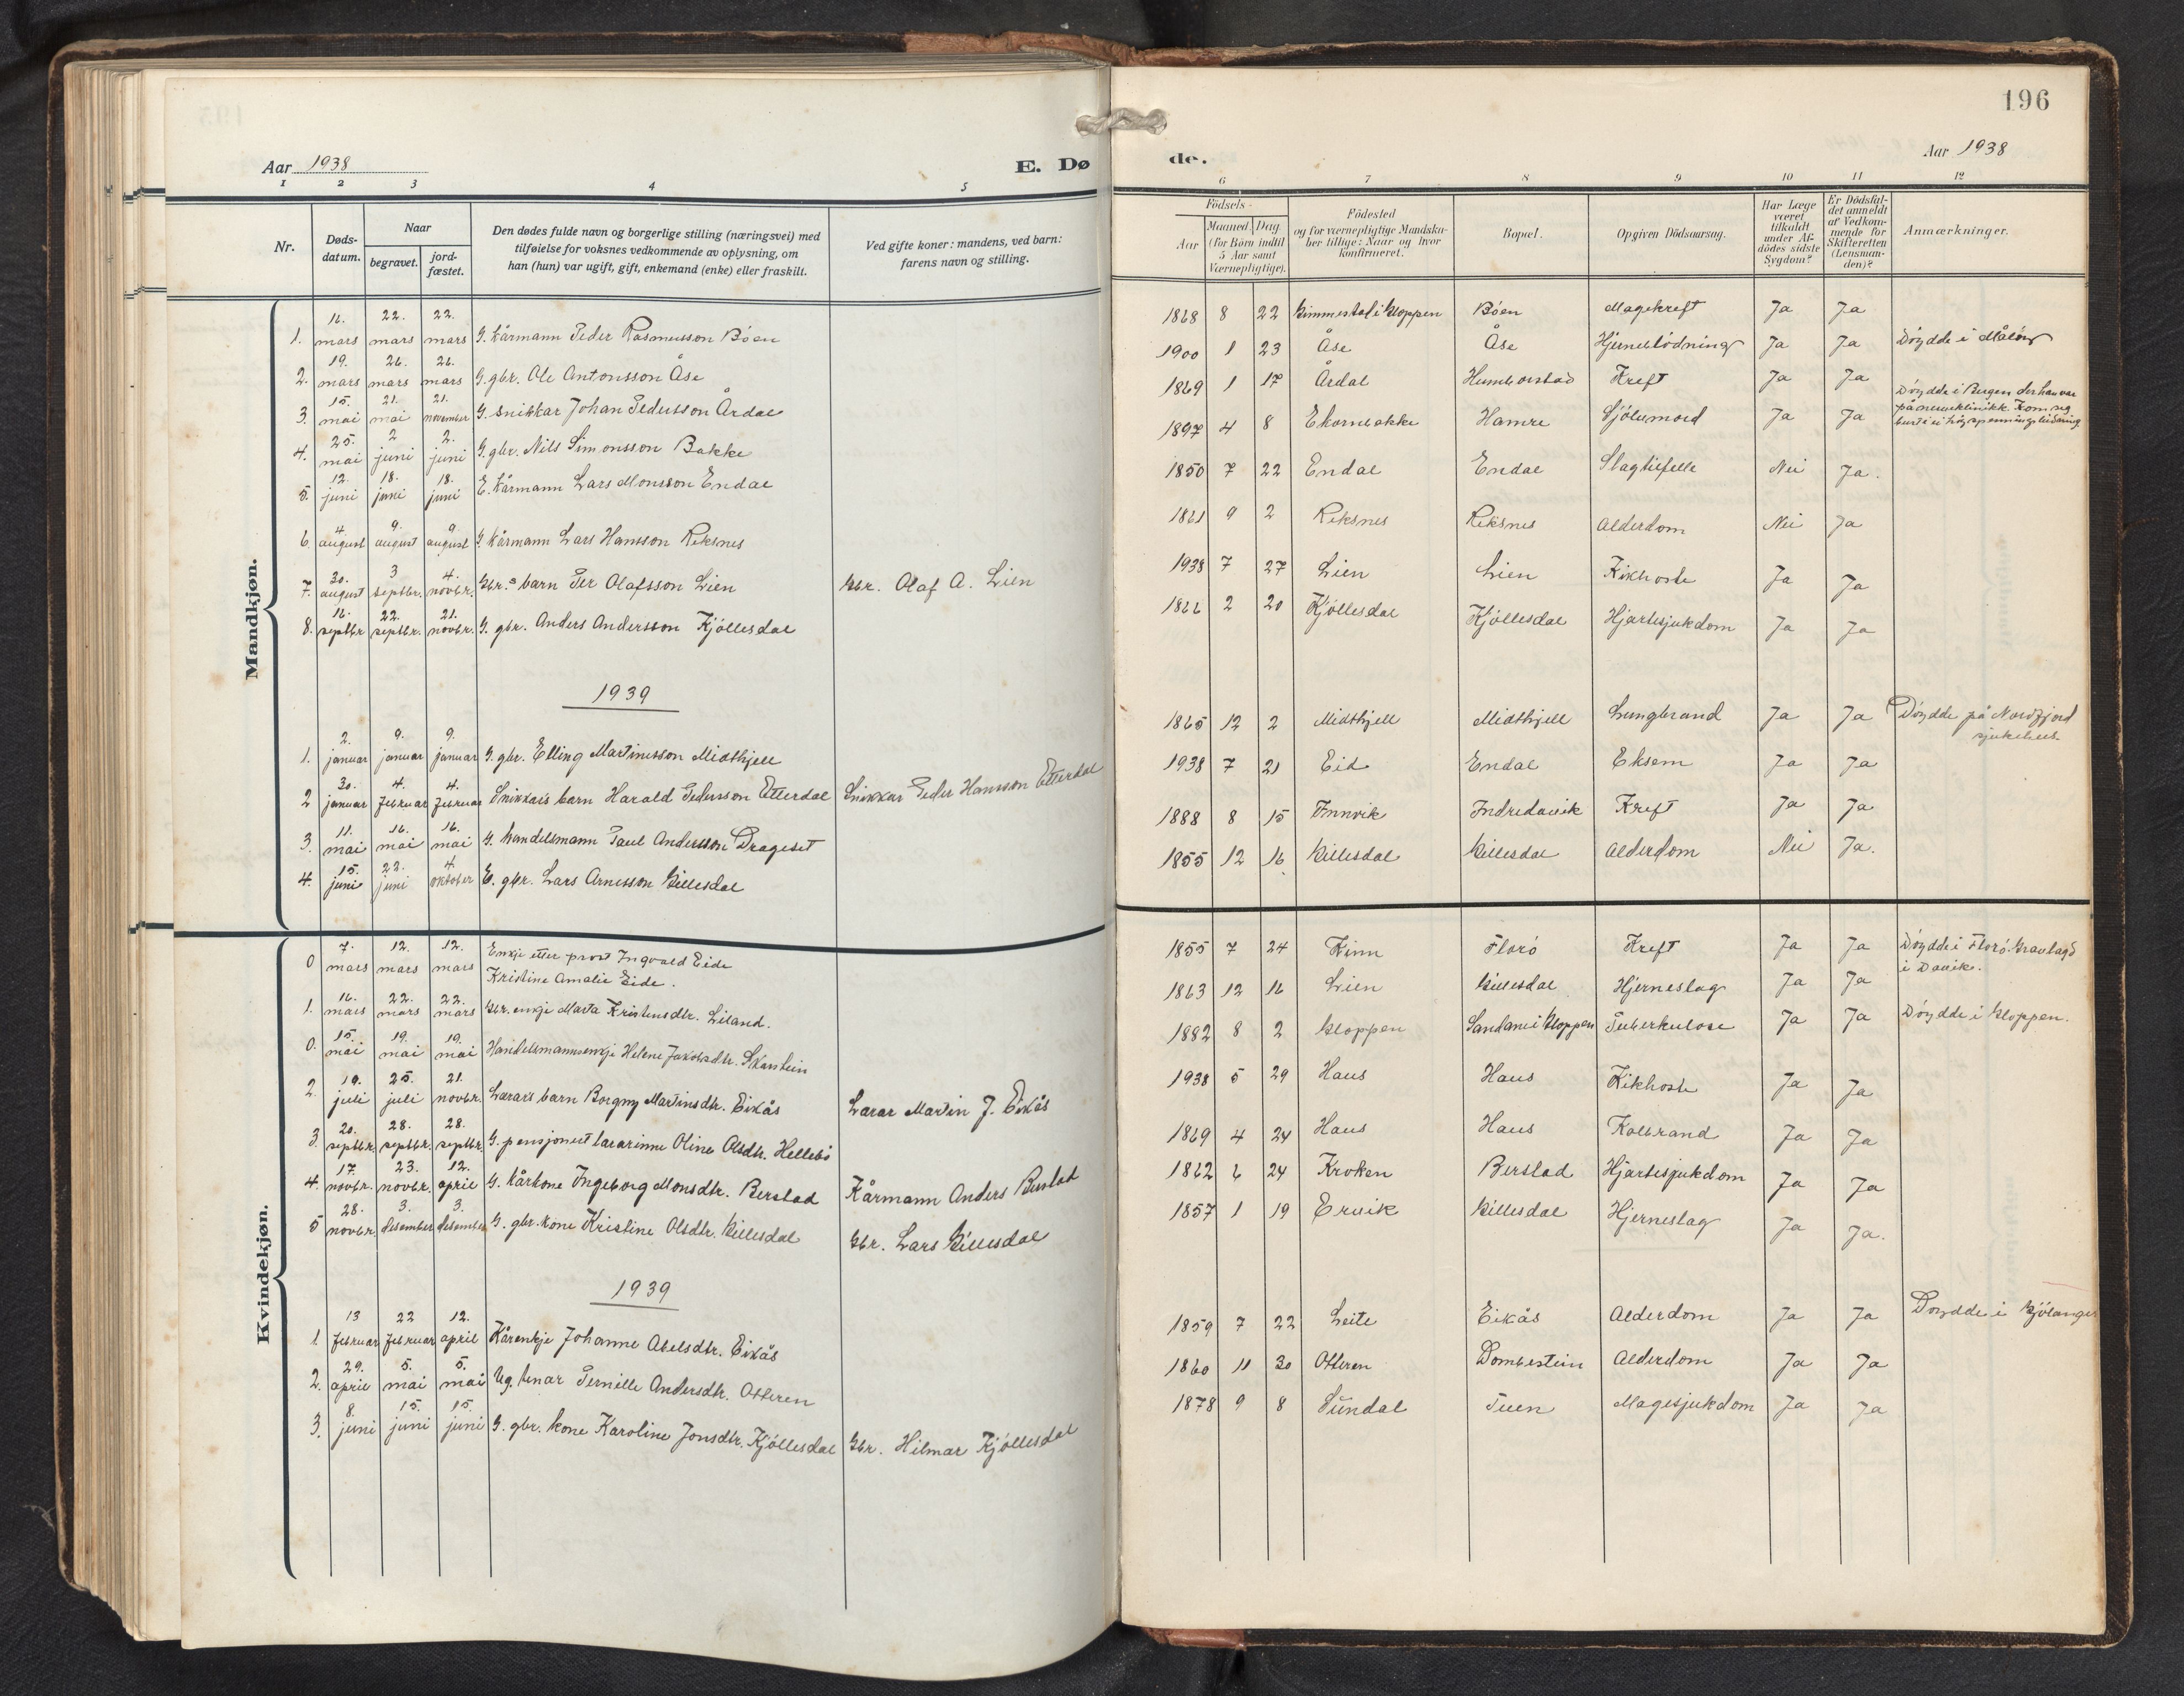 196
Aar 1938
E. Dø
de.
Aar 1938
1 2 3 4 5
6 7 8 9 10 11 12
Nr.
Døds-
datum.
Naar
begravet.
jord-
fæstet.
Den dødes fulde navn og borgerlige stilling (næringsvei) med
tilføielse for voksnes vedkommende av oplysning, om
han (hun) var ugift, gift, enkemand (enke) eller fraskilt.
Ved gifte koner: mandens, ved barn:
farens navn og stilling.
Födsels-
Aar
Maaned. Dag.
(for Börn indtil
5 Aar samt
Værnepligtige).
Födested
og for værnepligtige Mandska-
ber tillige: Naar og hvor
konfirmeret.
Bopæl.
Opgiven Dödsaarsag.
Har Læge
været
tilkaldt
under Af-
dödes sidste
Sygdom?
Er Dödsfal-
det anmeldt
af Vedkom-
mende for
Skifteretten
(Lensman-
den)?
Anmærkninger.
Mandkjøn.
1. 16. mars 22. mars 22. mars G. kårmann Peder Rasmusson Böen 1868 8 22 Gimmestad i Gloppen Böen Magekreft Ja Ja
2. 19. mars 26. mars 26. mars G. gbr. Ole Antonsson Åse 1900 1 23 Åse Åse Hjerneblödning Ja Ja Döydde i Målöy
3. 15. mai 21. mai 21. november G. snikkar Johan Pedersson Årdal 1869 1 17 Årdal Humborstad Kreft Ja Ja
4. 25. mai 2 juni 2. juni G. gbr. Nils Simonsson Bakke 1897 4 8 Ekornbakke Hamre Sjölvmord Ja Ja Döydde i Bergen der han var
på nerveklinikk. Kom seg
burt i ei högspenningsleidning
5. 12. juni 18. juni 18. juni E. kårmann Lars Monsson Endal 1850 7 22 Endal Endal Slagtilfelle Nei Ja.
6. 4. august 9. august 9. august G. kårmann Lars Hansson Reksnes 1861 9 2 Reksnes Reksnes Alderdom Nei Ja
7. 30. august 3 septbr. 4. novbr. Gbr.s barn Per Olafsson Lien Gbr. Olaf A. Lien 1938 7 27 Lien Lien Kikhoste Ja Ja
8. 16. septbr 22. septbr. 21. novbr. G. gbr. Anders Andersson Kjöllesdal 1866 2 20 Kjöllesdal Kjöllesdal Hjartesjukdom Ja Ja
1939
1. 2. januar 9. januar 9. januar G. gbr. Elling Martinusson Midthjell 1865 12 2 Midthjell Midthjell Lungbrand Ja Ja Döydde på Nordfjord
sjukehus.
2 30. januar 4. februar 4. februar Snikkars barn Harald Pedersson Etterdal Snikkar Peder Hansson Etterdal 1938 7 21 Eid Endal Eksem Ja Ja
3. 11. mai 16. mai 16. mai G. handelsmann Paul Andersson Drageset 1888 8 15 Innvik Indredavik Kreft Ja Ja
4. 15. juni 22. juni 4. oktober E. gbr. Lars Arnesson Gillesdal 1855 12 16 Gillesdal Gillesdal Alderdom Nei Ja.
Kvindekjøn.
0 7. mars 12. mars 12. mars Enkje etter prost Ingvald Eide
Kristine Amalie Eide. 1855 7 24 Kinn Florö Kreft Ja Ja Döydde i Florö. Gravlagd
i Davik.
1. 16. mars 22. mars 22. mars Gbr. enkje Marta Kristensdtr. Leland. 1863 12 16 Lien Gillesdal Hjerneslag Ja Ja
0. 15. mai 19. mai 19. mai Handelsmannsenkje Helene Jakobsdtr. Skarstein 1882 8 2 Gloppen Sandane i Gloppen Tuberkulose Ja Ja Döydde i Gloppen.
2. 19. juli 25. juli 21. novbr. Lærars barn Borgny Martinsdtr. Eikås Lærar Martin J. Eikås 1938 5 29 Haus Haus Kikhoste Ja Ja
3 20. septbr. 28. septbr. 28. septbr. G. pensjonert lærarinne Oline Olsdtr. Hellebö 1869 4 24 Haus Haus Kolbrand Ja Ja
4. 17. novbr. 23. novbr. 12. april G. kårkone Ingeborg Monsdtr. Berstad Kårmann Anders Berstad 1862 6 24 Kroken Berstad Hjartesjukdom Ja Ja
5 28. novbr. 3. desember 3. desember G. gbr. kone Kristine Olsdtr. Gillesdal Gbr. Lars Gillesdal 1857 1 19 Ervik Gillesdal Hjerneslag Ja Ja.
1939
1. 13 februar 22 februar 12. april Kårenkje Johanne Abelsdtr. Eikås 1859 7 22 Leite Eikås Alderdom Ja Ja Döydde i Gjölanger
2. 29. april 5. mai 5. mai Ug. tenar Pernille Andersdtr. Otteren 1860 11 30 Otteren Dombestein Alderdom Ja Ja
3. 8. juni 15. juni 15. juni G. gbr. kone Karoline Jonsdtr. Kjöllesdal Gbr. Hilmar Kjöllesdal 1878 9 8 Sundal Tuen Magesjukdom Ja Ja